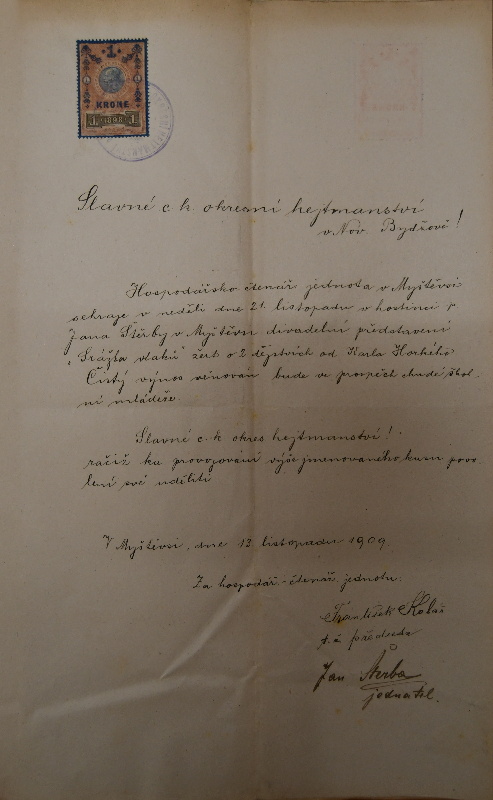 1
KRONE
1 1898 1
Slavné c. k. okresní hejtmanství
v Nov. Bydžově!
Hospodářsko čtenář. jednota v Myštěvsi
sehraje v neděli dne 21. listopadu v hostinci p.
Jana Štěrby v Myštěvsi divadelní představení
"Srážka vlaků" žert o 2 dějstvích od Karla Horkého
Čistý výnos věnován bude ve prospěch chudé škol.
ní mládeže.
Slavné c. k. okres hejtmanství!
račiž ku provozování výše jmenovaného kusu povo
lení své uděliti
V Myštěvsi, dne 13 listopadu 1909
Za hospodář.-čtenář. jednotu.
František Kolář
t. č. předseda
Jan Štěrba
jednatel.